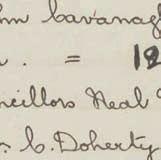 hn Cavanagh
. = 12
ncillors Neal
. C. Doherty